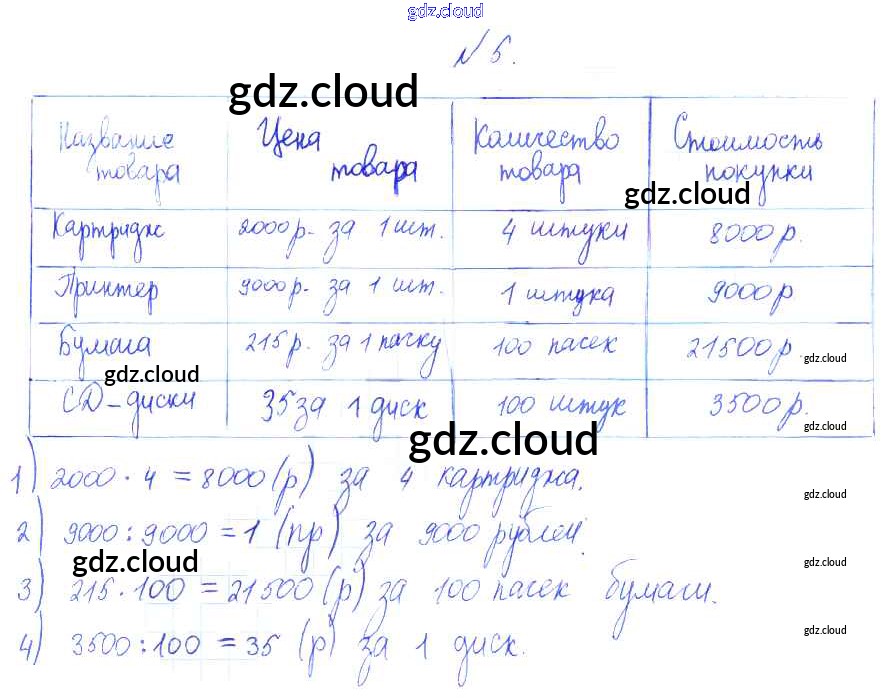 gdz.cloud
№ 5.
gdz.cloud
Название товара Цена товара Количество товара Стоимость покупки
gdz.cloud
Картридж 2000р. за 1 шт. 4 штуки 8000р.
Принтер 9000р. за 1 шт. 1 штука 9000р
Бумага 215р. за 1 пачку 100 пасек 21500р.
gdz.cloud
gdz.cloud
CD-диски 35 за 1 диск 100 штук 3500р.
gdz.cloud
gdz.cloud
1) 2000 · 4 = 8000 (р) за 4 картриджа.
gdz.cloud
2) 9000 : 9000 = 1 (пр) за 9000 рублей.
gdz.cloud
gdz.cloud
3) 215 · 100 = 21500 (р) за 100 пасек бумаги.
gdz.cloud
4) 3500 : 100 = 35 (р) за 1 диск.